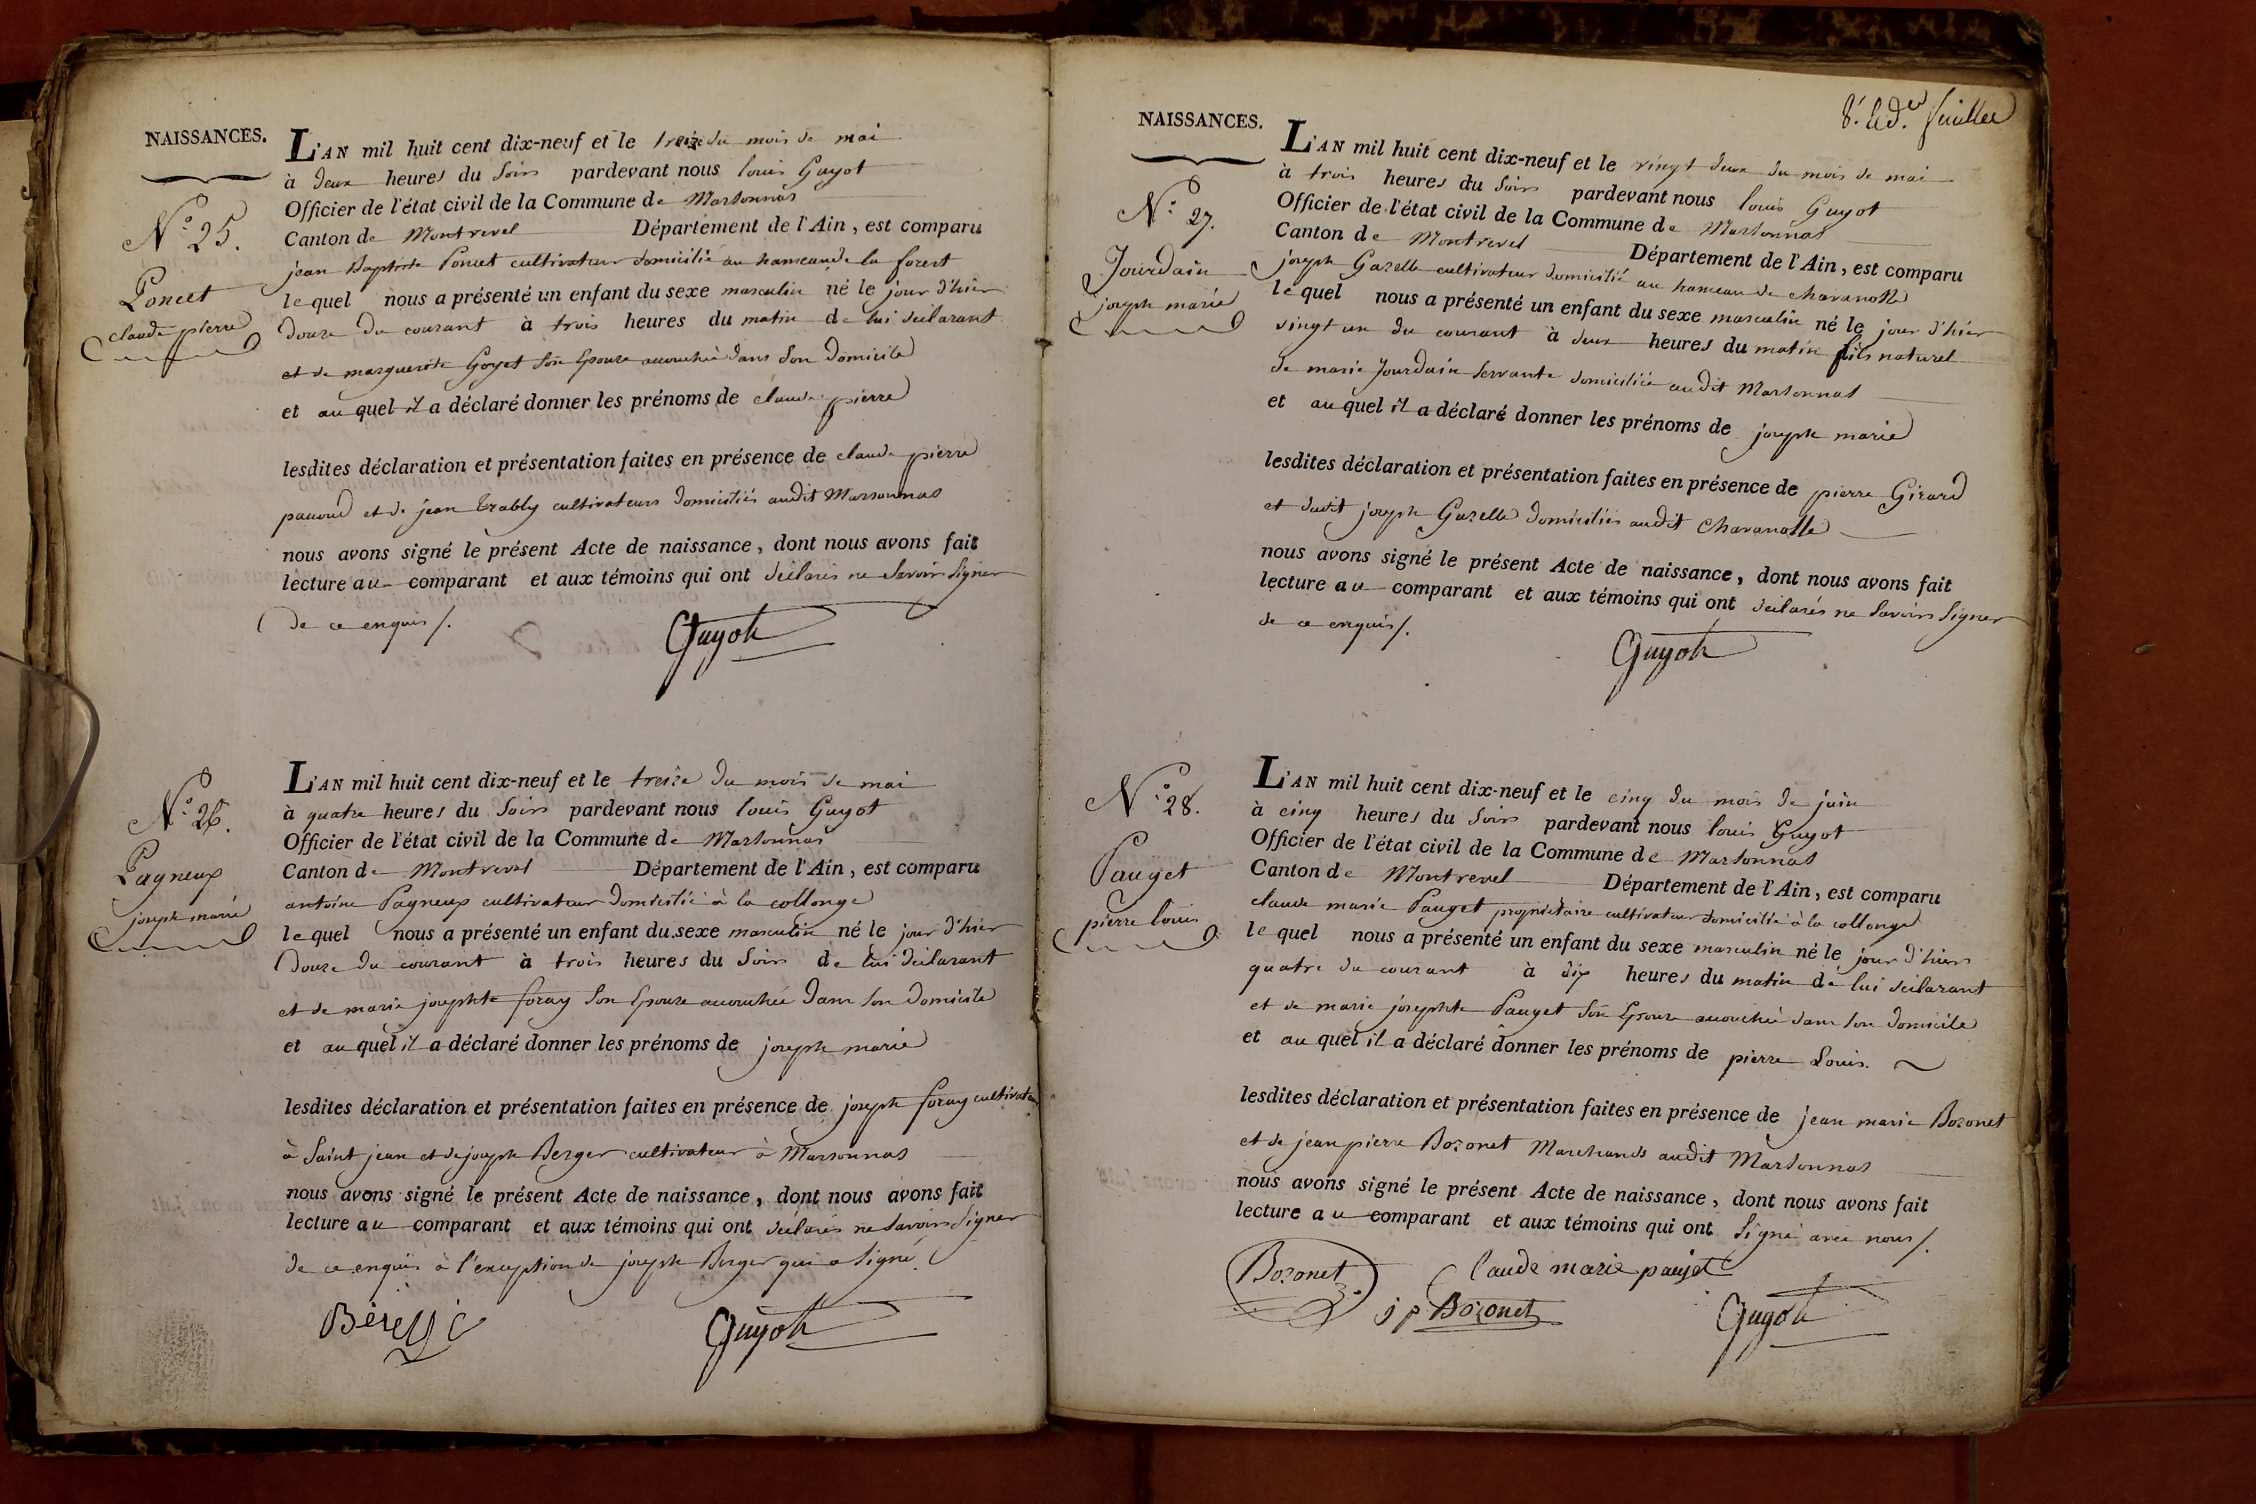 NAISSANCES.
L'AN mil huit cent dix-neuf et le treize du mois de mai
à deux heures du soir pardevant nous louis Guyot
Officier de l'état civil de la Commune de Marsonnas
Canton de Montrevel Département de l'Ain, est comparu
jean Baptiste Poncet cultivateur domicilié au hameau de la forest
lequel nous a présenté un enfant du sexe masculin né le jour d'hier
douze du courant à trois heures du matin de lui déclarant
et de marguerite Goyet son Epouse accouchée dans son domicile
et auquel il a déclaré donner les prénoms de claude pierre
lesdites déclaration et présentation faites en présence de claude pierre
pacoud et de jean Erably cultivateurs domiciliés audit Marsonnas
nous avons signé le présent Acte de naissance, dont nous avons fait
lecture au comparant et aux témoins qui ont déclarés ne savoir signer
de ce enquis /.
Guyot
N.º 25.
Poncet
claude pierre
L'AN mil huit cent dix-neuf et le treize du mois de mai
à quatre heures du soir pardevant nous louis Guyot
Officier de l'état civil de la Commune de Marsonnas
Canton de Montrevel Département de l'Ain, est comparu
antoine Pagneux cultivateur domicilié à la collonge
lequel nous a présenté un enfant du sexe masculin né le jour d'hier
douze du courant à trois heures du soir de lui déclarant
et de marie josephte foray son Epouse accouchée dans son domicile
et auquel il a déclaré donner les prénoms de joseph marie
lesdites déclaration et présentation faites en présence de joseph foray cultivateur
à Saint jean et de joseph Berger cultivateur à Marsonnas
nous avons signé le présent Acte de naissance, dont nous avons fait
lecture au comparant et aux témoins qui ont déclarés ne savoir signer
de ce enquis à l'exception de joseph Berger qui a signé.
Guyot
N.º 26.
Pagneux
joseph marie
8.e & d.er feuillet
NAISSANCES.
L'AN mil huit cent dix-neuf et le vingt deux du mois de mai
à trois heures du soir pardevant nous louis Guyot
Officier de l'état civil de la Commune de Marsonnas
Canton de Montrevel Département de l'Ain, est comparu
joseph Gazelle cultivateur domicilié au hameau de chavanolle
lequel nous a présenté un enfant du sexe masculin né le jour d'hier
vingt un du courant à deux heures du matin fils naturel
de marie Jourdain servante domiciliée audit Marsonnas
et auquel il a déclaré donner les prénoms de joseph marie
lesdites déclaration et présentation faites en présence de pierre Girard
et dudit joseph Gazelle domiciliés audit Chavanolle
nous avons signé le présent Acte de naissance, dont nous avons fait
lecture au comparant et aux témoins qui ont déclarés ne savoir signer
de ce enquis /.
Guyot
N.º 27.
Jourdain
joseph marie
L'AN mil huit cent dix-neuf et le cinq du mois de juin
à cinq heures du soir pardevant nous louis Guyot
Officier de l'état civil de la Commune de Marsonnas
Canton de Montrevel Département de l'Ain, est comparu
claude marie Pauget propriétaire cultivateur domicilié à la collonge
lequel nous a présenté un enfant du sexe masculin né le jour d'hier
quatre du courant à dix heures du matin de lui déclarant
et de marie josephte Pauget son Epouse accouchée dans son domicile
et auquel il a déclaré donner les prénoms de pierre Louis.
lesdites déclaration et présentation faites en présence de jean marie Bozonet
et de jean pierre Bozonet Marchands audit Marsonnas
nous avons signé le présent Acte de naissance, dont nous avons fait
lecture au comparant et aux témoins qui ont signé avec nous /.
Bozonet
Claude marie pauget
j p Bozonet
Guyot
N.º 28.
Pauget
pierre louis